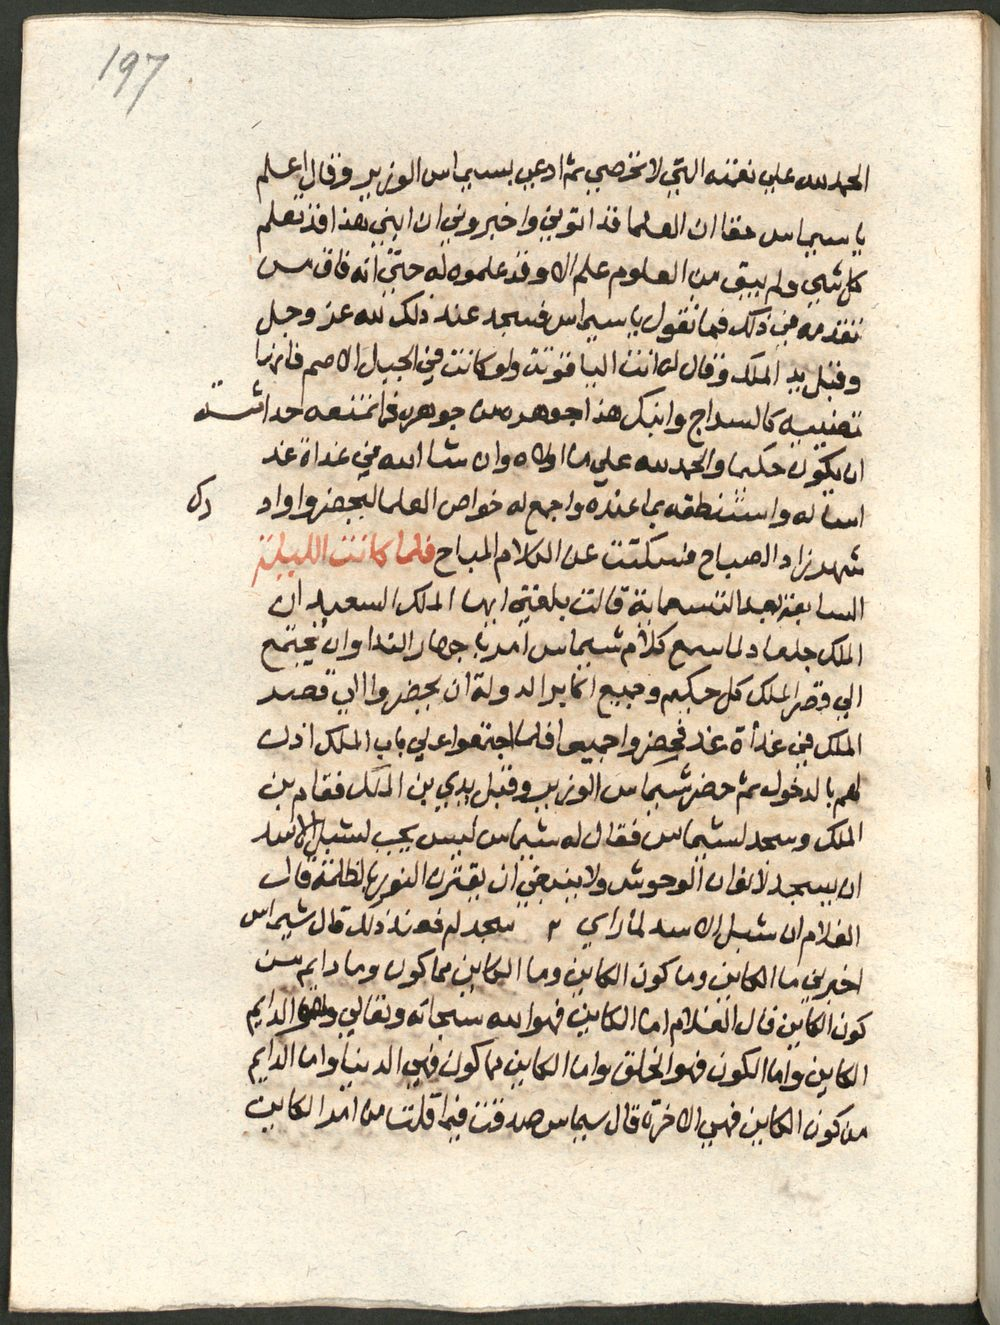 197
الحمد لله علي نعمته التي لا تحصي ثم ادعي بسيماس الوزير وقال اعلم
يا سيماس حقا ان العلما قد اتوني واخبروني ان ابني هذا قد تعلم
كل شي ولم يبق من العلوم علم الا وقد علموه له حتي انه فاق من
تقدمه في ذلك فما تقول يا سيماس فسجد عند ذلك لله عز وجل
وقبل يد الملك وقال ان اليا قوتة ولو كانت في الجبل الاصم فانها
تضي كالسراج وابنك هذا جوهره من جوهره فما تمنعه حداثته
ان يكون حكيما والحمد لله علي ما اولاه وان شا الله في غداة غد
اساله واستنطقه بما عنده واجمع له خواص العلما ليحضروا واد
رك
شهرزاد الصباح فسكتت عن الكلام المباح فلما كانت الليلة
السابعة بعد التسعماية قالت بلغني ايها الملك السعيد ان
الملك جلعاد لما سمع كلام شيماس امر با جهار الندا وان يجتمع
الي قصر الملك كل حكيم وجميع اكابر الدولة ان يحضروا الي قصر
الملك في غدأة غد فحضروا جميعا فلما اجتمعوا علي باب الملك اذن
لهم بالدخول ثم حضر شيماس الوزير وقبل يدي بن الملك فقام بن
الملك وسجد لشيماس فقال له شيماس ليس يجب لشبل الاسد
ان يسجد لالفان الوحوش ولا ينبغي ان يقترن النور بالظلمة قال
الغلام ان شبل الاسد لما راي سجد له فعند ذلك قال شيماس
اخبرني ما الكاين وما كون الكاين وما الكاين مما كون وما دايم من
كون الكاين قال الغلام اما الكاين فهو الله سبحانه وتعالي وهو الدايم
الكاين واما الكون فهو الخلق واما الكاين مما كون فهي الدنيا واما الدايم
من كون الكاين فهي الاخرة قال سيماس صدقت فيما قلت من امر الكاين